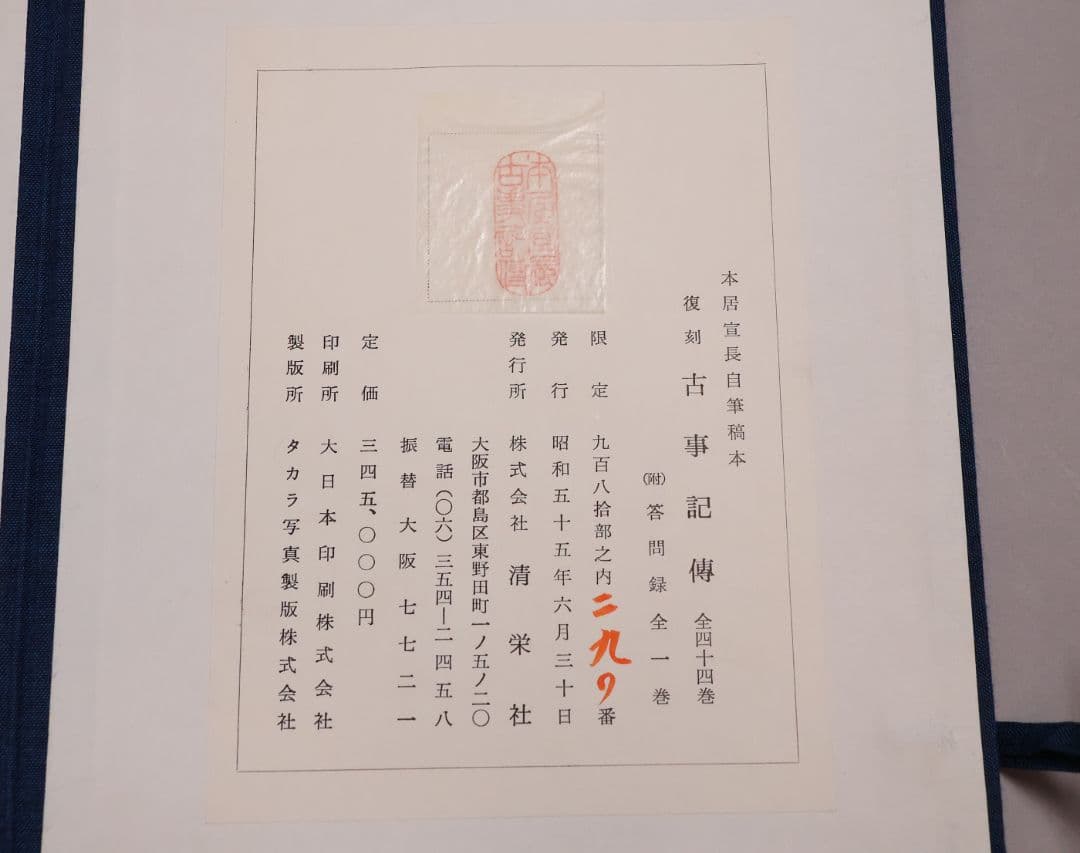 本居宣長
古事記傳
本居宣長自筆稿本
復刻 古事記傳 全四十四巻
(附)答問録 全一巻
限定 九百八拾部之内二九番
発行 昭和五十五年六月三十日
発行所 株式会社 清栄社
大阪市都島区東野田町一ノ五ノ二〇
電話(〇六)三五四―二四五八
振替大阪七七二一
定価 三四五、〇〇〇円
印刷所 大日本印刷株式会社
製版所 タカラ写真製版株式会社